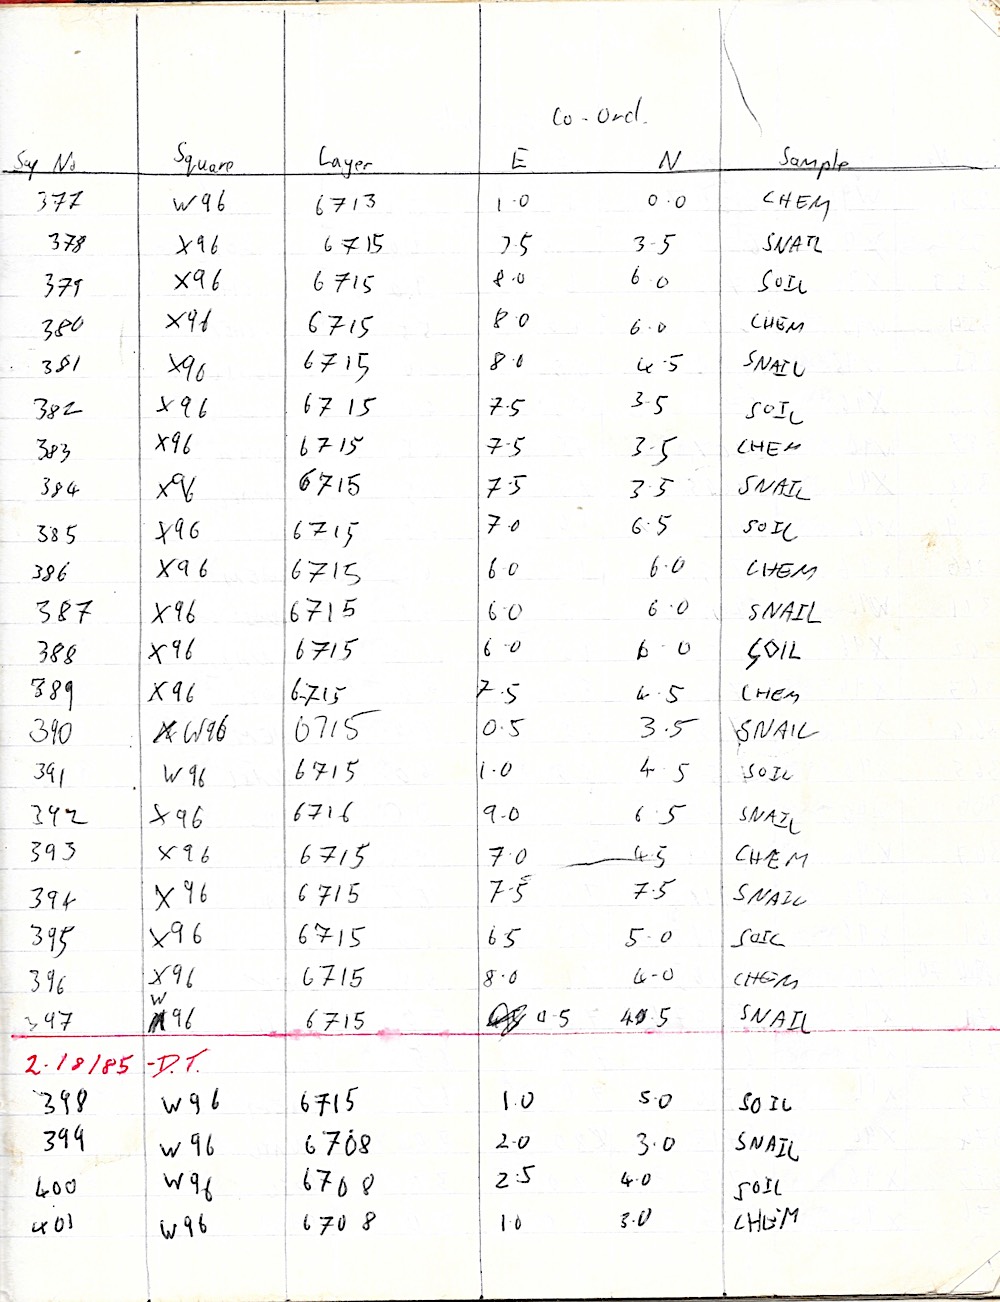 Co-Ord.
No Square Layer E N Sample
377 W96 6713 1.0 0.0 CHEM
378 X96 6715 7.5 3.5 SNAIL
379 X96 6715 8.0 6.0 SOIL
380 X96 6715 8.0 6.0 CHEM
381 X96 6715 8.0 4.5 SNAIL
382 X96 6715 7.5 3.5 SOIL
383 X96 6715 7.5 3.5 CHEM
384 X96 6715 7.5 3.5 SNAIL
385 X96 6715 7.0 6.5 SOIL
386 X96 6715 6.0 6.0 CHEM
387 X96 6715 6.0 6.0 SNAIL
388 X96 6715 6.0 6.0 SOIL
389 X96 6715 7.5 4.5 CHEM
390 W96 6715 0.5 3.5 SNAIL
391 W96 6715 1.0 4.5 SOIL
392 X96 6716 9.0 6.5 SNAIL
393 X96 6715 7.0 4.5 CHEM
394 X96 6715 7.5 7.5 SNAIL
395 X96 6715 6.5 5.0 SOIL
396 X96 6715 8.0 4.0 CHEM
397 W96 6715 0.5 4.5 SNAIL
2.18/85 -D.T.
398 W96 6715 1.0 5.0 SOIL
399 W96 6708 2.0 3.0 SNAIL
400 W96 6708 2.5 4.0 SOIL
401 W96 6708 1.0 3.0 CHEM